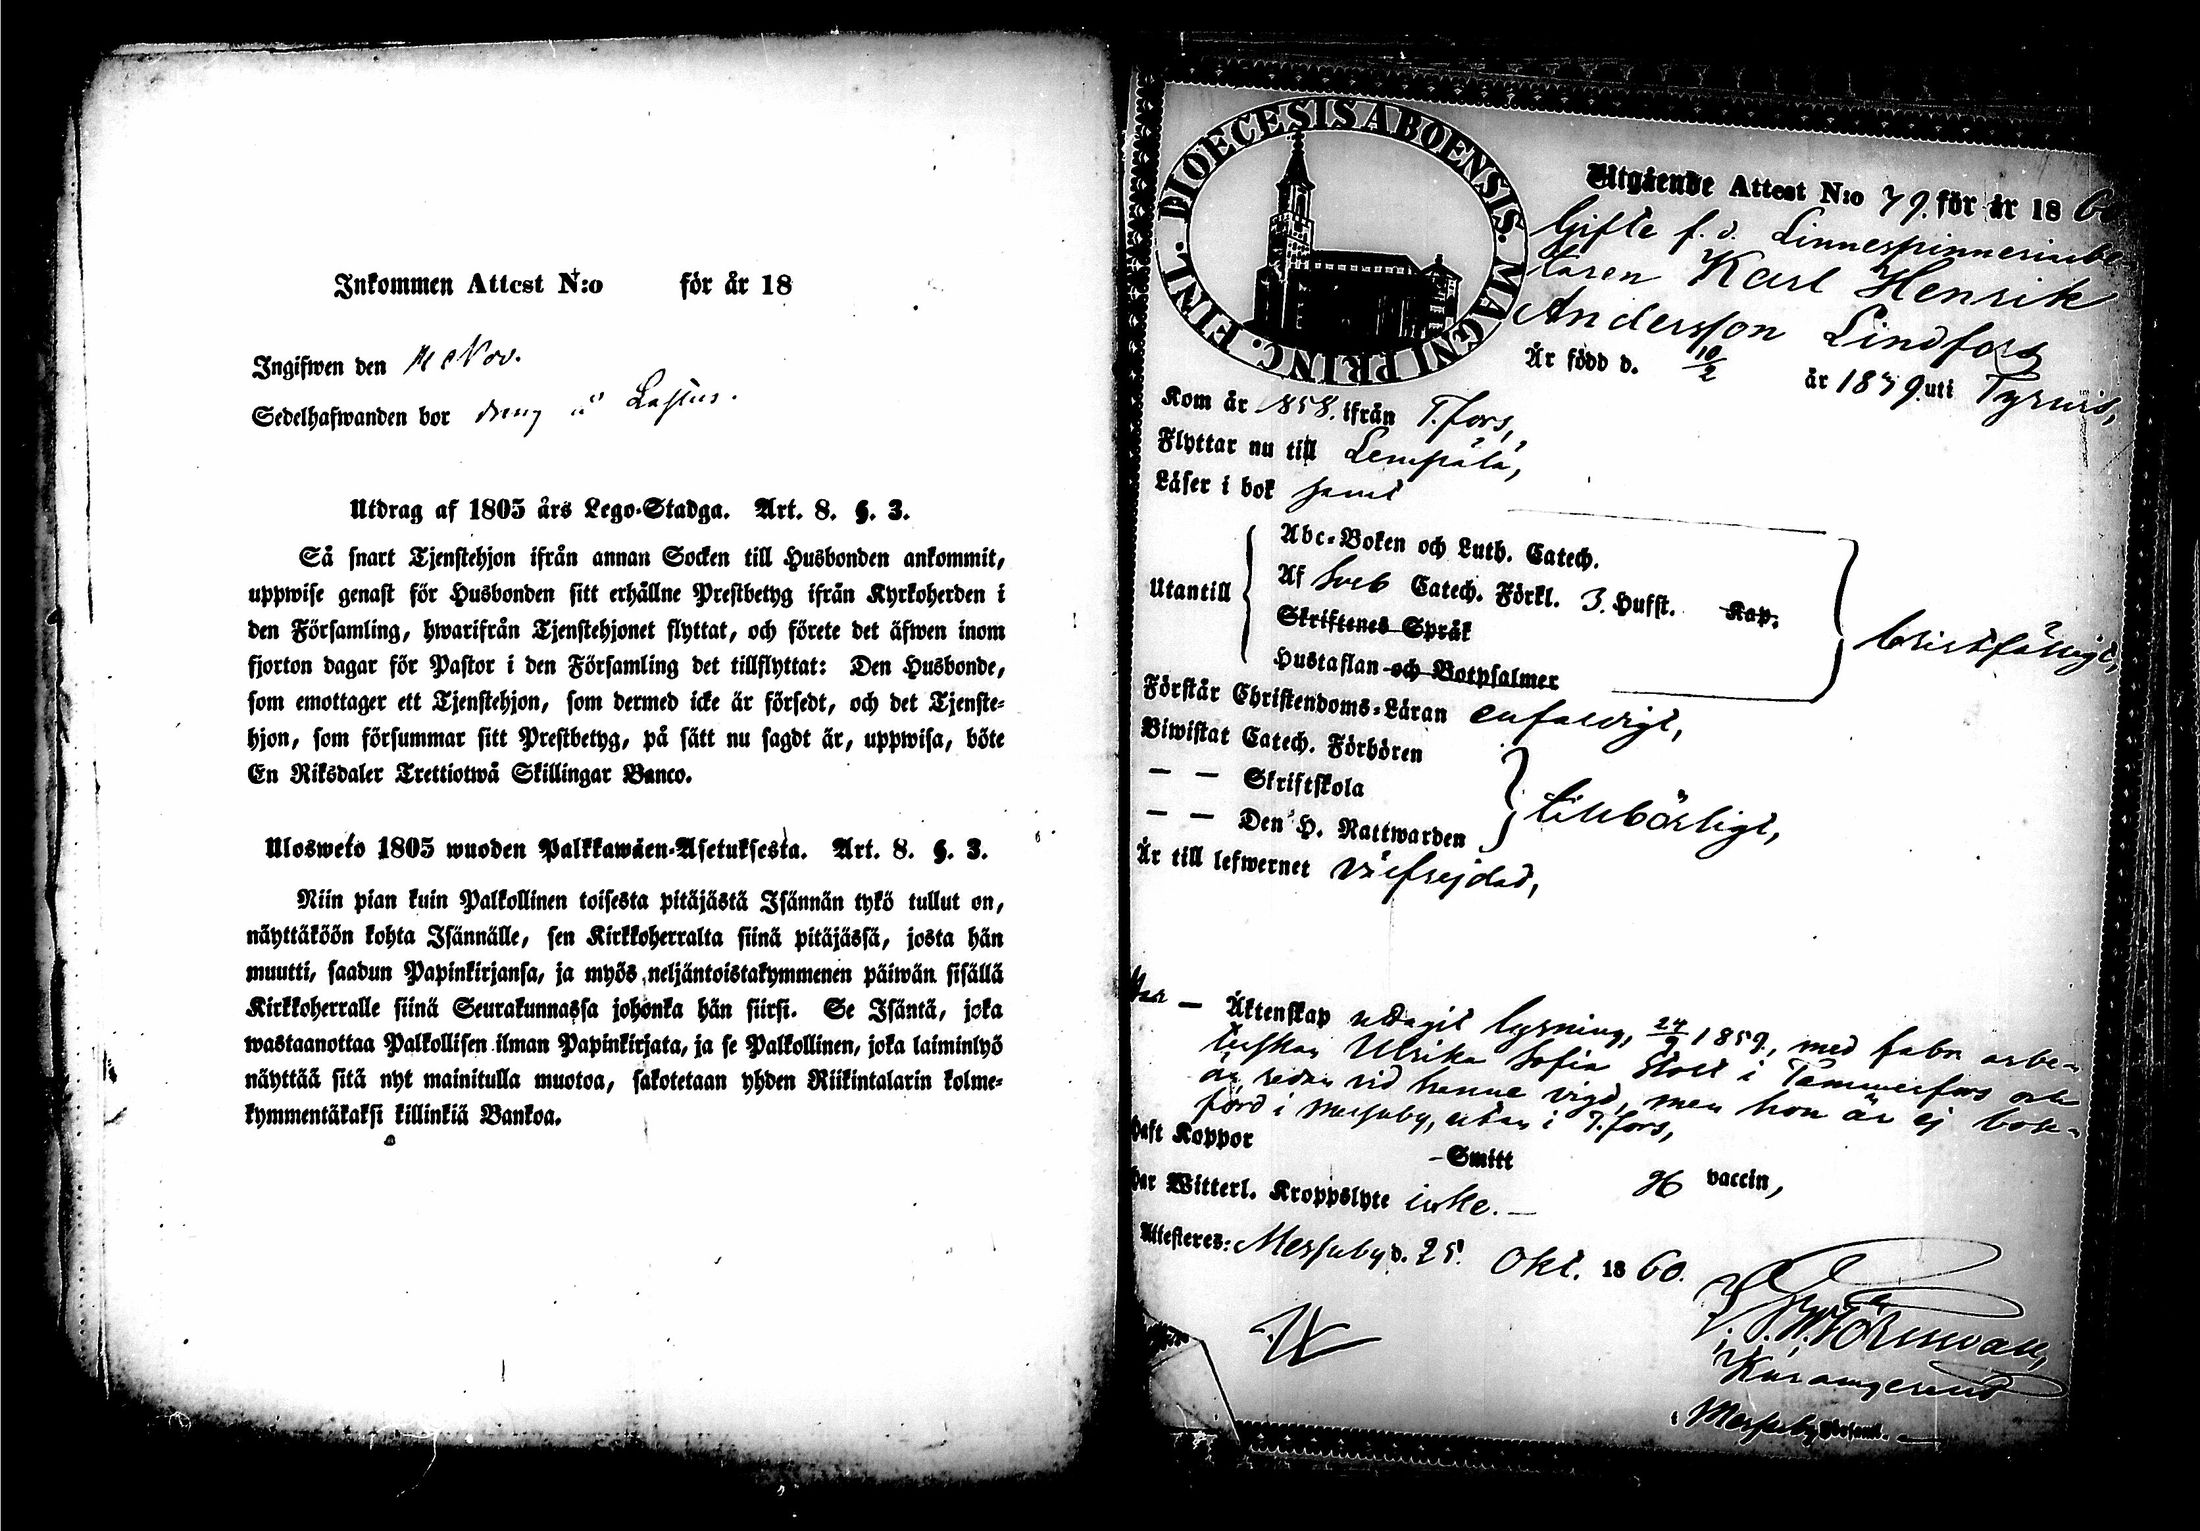 Inkommen Attest N:o för år 18
Ingifwen den Nov.
Sedelhafwanden bor dräng i Lastus.
Utdrag af 1805 års Lego-Stadga. Art. 8. §. 3.
Så snart Tjenstehjon ifrån annan Socken till Husbonden ankommit,
uppwise genast för Husbonden sitt erhållne Prestbetyg ifrån Kyrkoherden i
den Församling, hwarifrån Tjenstehjonet flyttat, och förete det äfwen inom
fjorton dagar för Pastor i den Församling det tillflyttat: Den Husbonde,
som emottager ett Tjenstehjon, som dermed icke är försedt, och det Tjenste-
hjon, som försummar sitt Prestbetyg, på sätt nu sagdt är, uppwisa, böte
En Riksdaler Trettiotwå Skillingar Banco.
Ulosweto 1805 wuoden Palkkawäen-Asetuksesta. Art. 8. §. 3.
Niin pian kuin Palkollinen toisesta pitäjästä Isännän tykö tullut on,
näyttäköön kohta Isännälle, sen Kirkkoherralta siinä pitäjässä, josta hän
muutti, saadun Papinkirjansa, ja myös neljäntoistakymmenen päiwän sisällä
Kirkkoherralle siinä Seurakunnassa johonka hän siirsi. Se Isäntä, joka
wastaanottaa Palkollisen ilman Papinkirjata, ja se Palkollinen, joka laiminlyö
näyttää sitä nyt mainitulla muotoa, sakotetaan yhden Riikintalarin kolme-
kymmentäkaksi killinkiä Bankoa.
DIOECESIS ABOENSIS. MAGNI PRINC. FINL.
Utgående Attest N:o 79. för år 1860
Gifte f. d. Linnespinneriarbe-
taren Karl Henrik
Andersson Lindfors
Är född d. 10/2 år 1839. uti Tyrvis,
Kom år 1858. ifrån T.fors,
Flyttar nu till Lempälä,
Läser i bok samt
Utantill
Abc-Boken och Luth. Catech.
Af Sveb Catech. Förkl. 3. Hufst. Kap.
Skriftenes Språk
Hustaflan och Botpsalmer
bristfälligt,
Förstår Christendoms-Läran enfaldigt,
Biwistat Catech. Förhören
— — Skriftskola
— — Den H. Nattwarden
tillbörligt,
Är till lefwernet välfrejdad,
Har — Äktenskap uttagit lysning, 24/9 1859., med fabr arbe-
terskan Ulrika Sofia Stolt i Tammerfors och
är sedan vid henne vigd, men hon är ej bok-
förd i Messuby, utan i T.fors,
Haft Koppor — Smitt vaccin,
Har Witterl. Kroppslyte icke. —
Attesteres: Messuby d. 25. Okt. 1860.
i Messuby Församl.